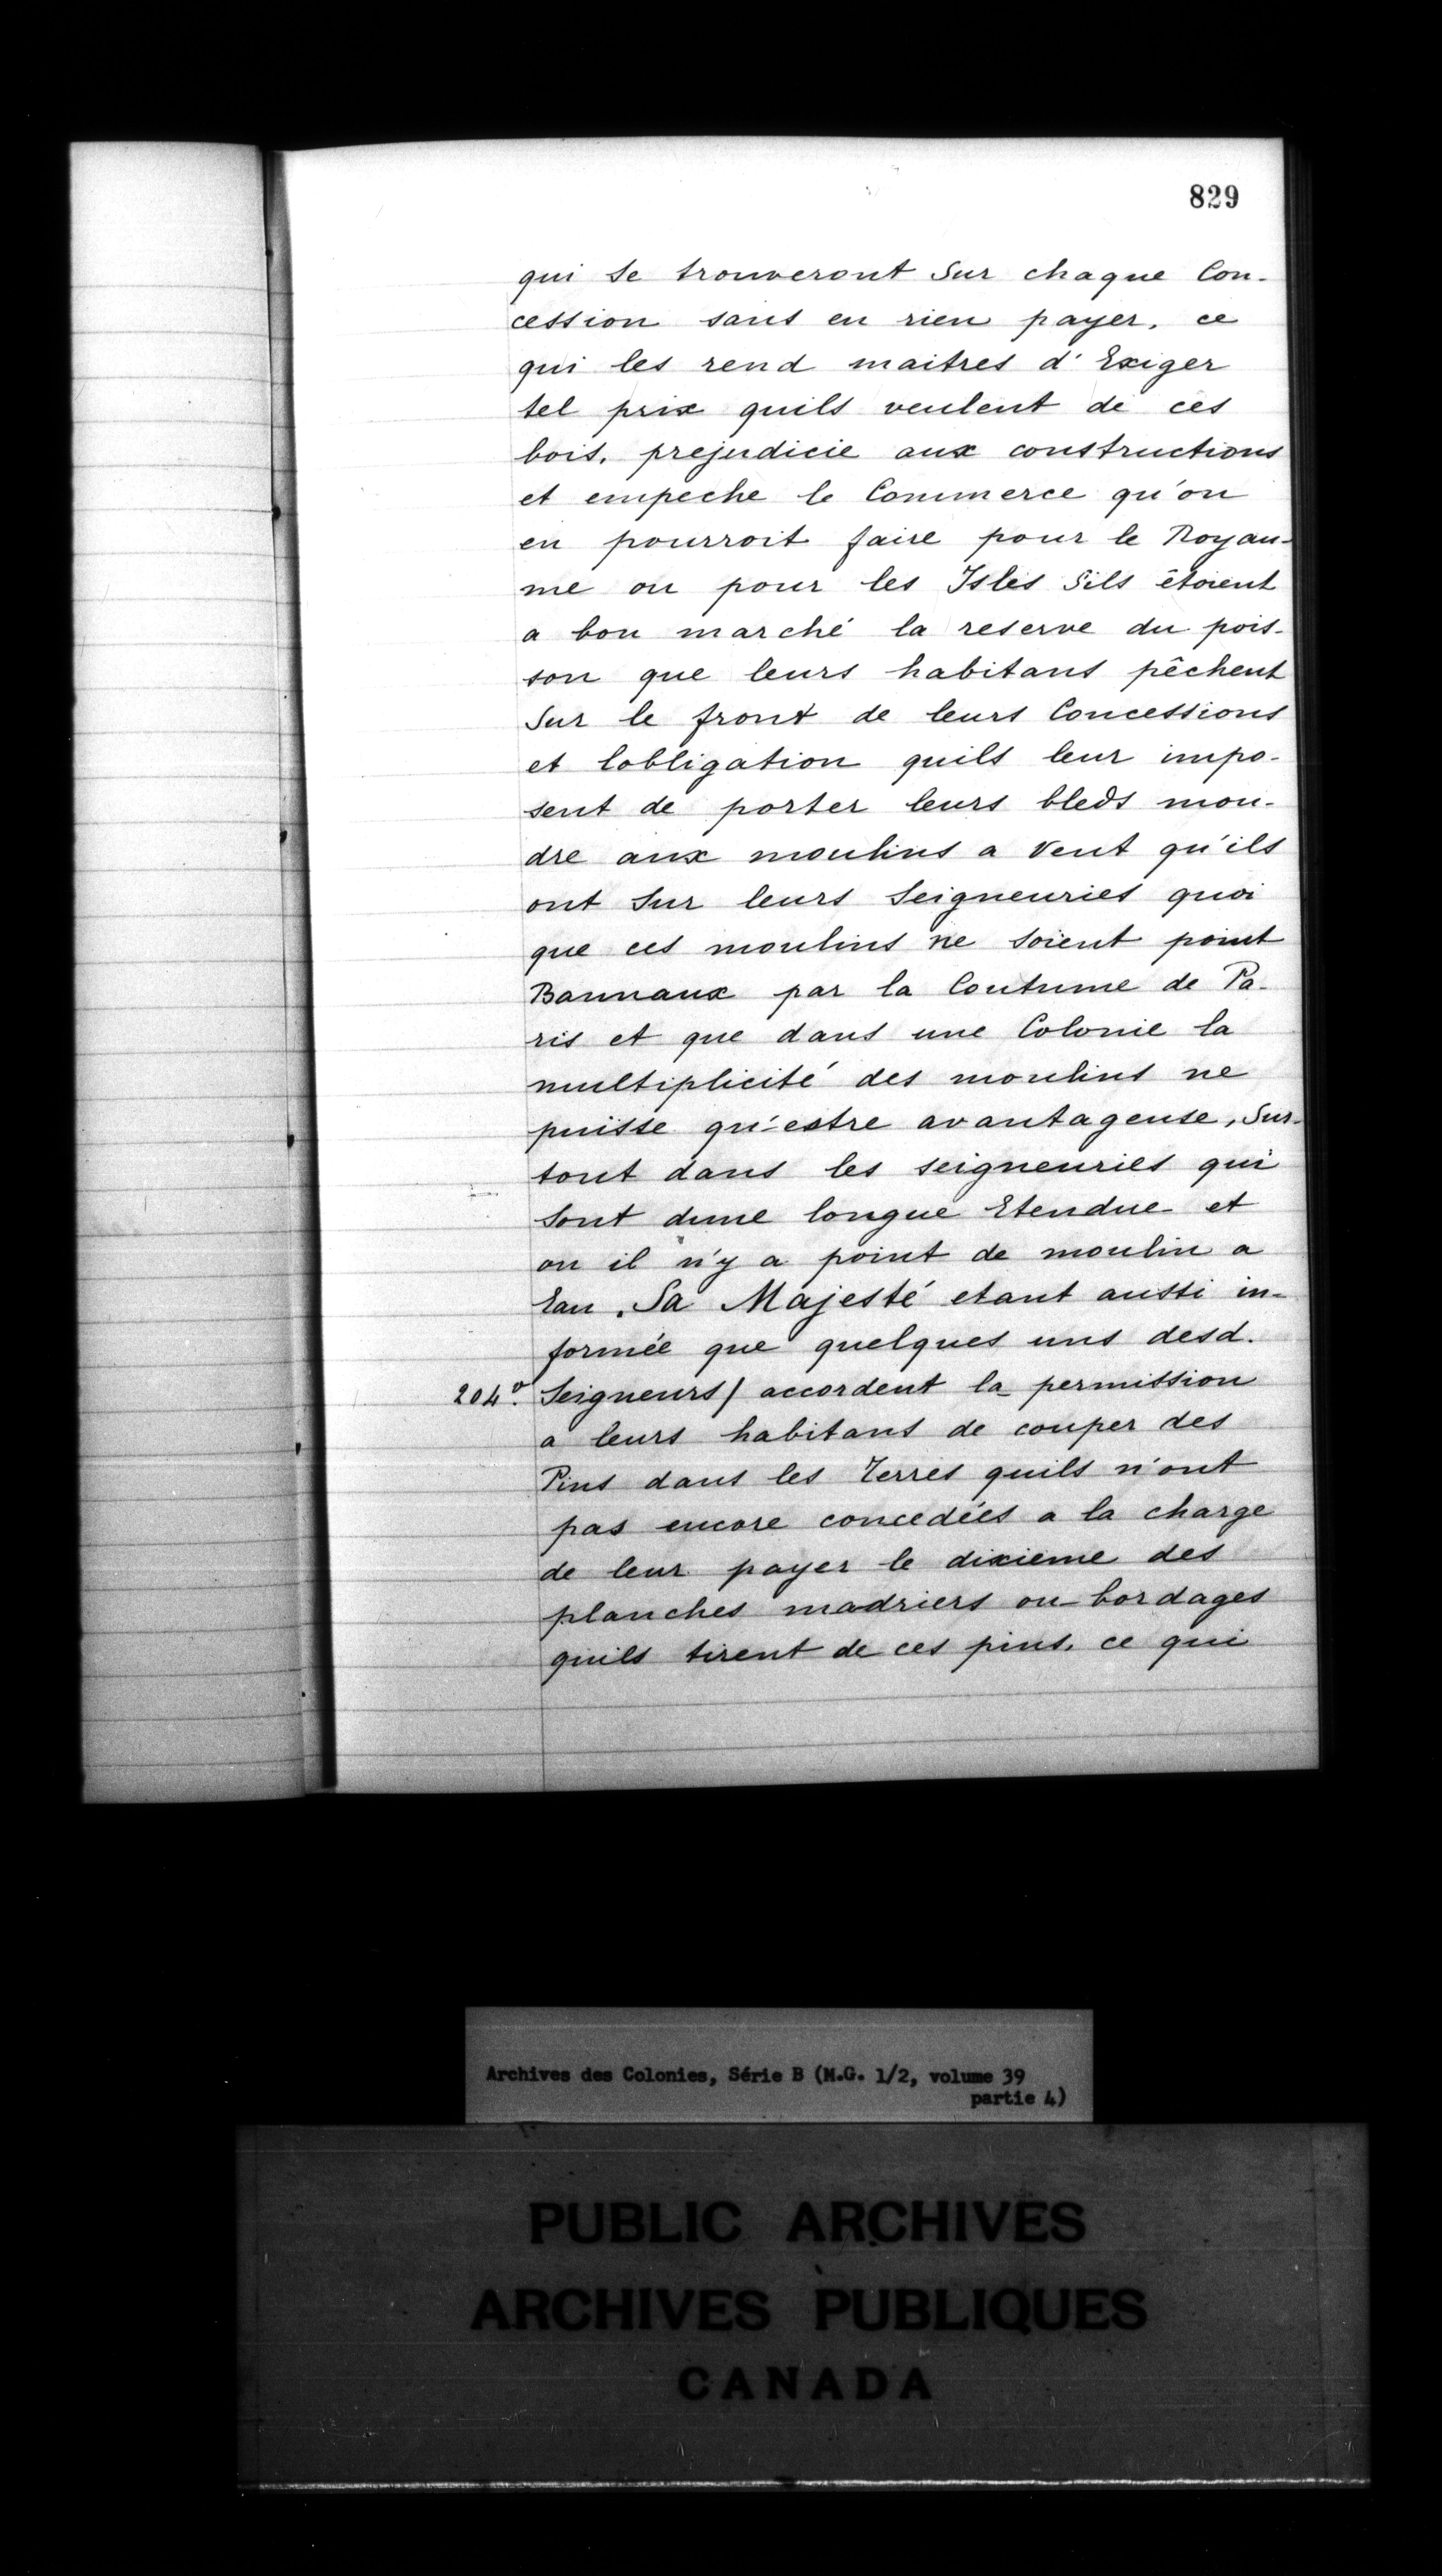 829
qui se trouveront sur chaque Con-
cession sans en rien payer, ce
qui les rend maitres d'Exiger
tel prix quils veulent de ces
bois, prejudicie aux constructions
et empeche le Commerce qu'on
en pourroit faire pour le Royau-
me ou pour les Isles Sils étoient
a bon marché la reserve du pois-
son que leurs habitans pêchent
Sur le front de leurs Concessions
et lobligation quils leur impo-
sent de porter leurs bleds mou-
dre aux moulins a Vent qu'ils
ont Sur leurs Seigneuries quoi
que ces moulins ne soient point
Bannaux par la Coutume de Pa-
ris et que dans une Colonie la
multiplicité des moulins ne
puisse qu'estre avantageuse, Sur-
tout dans les seigneuries qui
sont dune longue Etendue et
ou il n'y a point de moulin a
Eau. Sa Majesté etant aussi in-
formée que quelques uns desd.
204.v Seigneurs/ accordent la permission
a leurs habitans de couper des
Pins dans les Terres quils n'ont
pas encore concedées a la charge
de leur payer le dixieme des
planches madriers ou bordages
quils tirent de ces pins, ce qui
Archives des Colonies, Série B (M.G. 1/2, volume 39
partie 4)
PUBLIC ARCHIVES
ARCHIVES PUBLIQUES
CANADA